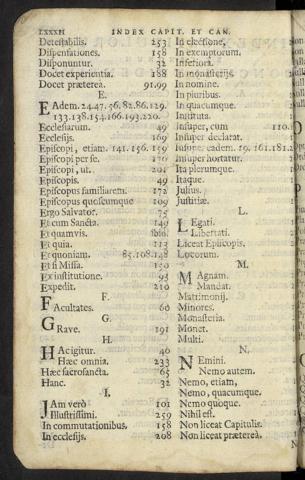 LXXXII INDEX CAPIT. ET CAN.
Detestabilis. 253
Dispensationes. 158
Disponuntur. 32
Docet experientia. 188
Docet præterea. 91.99
E.
EAdem. 24.47.56.82.86.129.
133.138.154.166.193.220.
Ecclesiarum. 49
Ecclesijs. 169
Episcopi, etiam. 141.156.159
Episcopi per se. 170
Episcopi, ut. 201
Episcopis. 49
Episcopus familiarem. 172
Episcopus quoscumque 109
Ergo Salvator. 75
Et cum Sancta. 149
Et quamvis. ibid.
Et quia. 113
Et quoniam. 85.108.148
Et si Missa. 150
Ex institutione. 95
Expedit. 210
F.
FAcultates. 60
G.
GRave. 191
H.
HAc igitur. 40
Hæc omnia. 233
Hæc sacrosancta. 65
Hanc. 32
I.
JAm verò 101
Illustrissimi. 259
In commutationibus. 158
In ecclesijs. 208
In electione,
In exemptorum.
Inferiora.
In monasterijs.
In nomine.
In pluribus.
In quacumque.
Instituta.
Insuper, cum 110.
Insuper declarat.
Insuper eadem. 19.161.181.
Insuper hortatur.
Ita plerumque.
Itaque.
Julius.
Justitiæ.
L.
LEgati.
Libertati.
Liceat Episcopis.
Locorum.
M.
MAgnam.
Mandat.
Matrimonij.
Minores.
Monasteria.
Monet.
Multi.
N.
NEmini.
Nemo autem.
Nemo, etiam,
Nemo, quacumque.
Nemo quoque.
Nihil est.
Non liceat Capitulis.
Non liceat præterea.